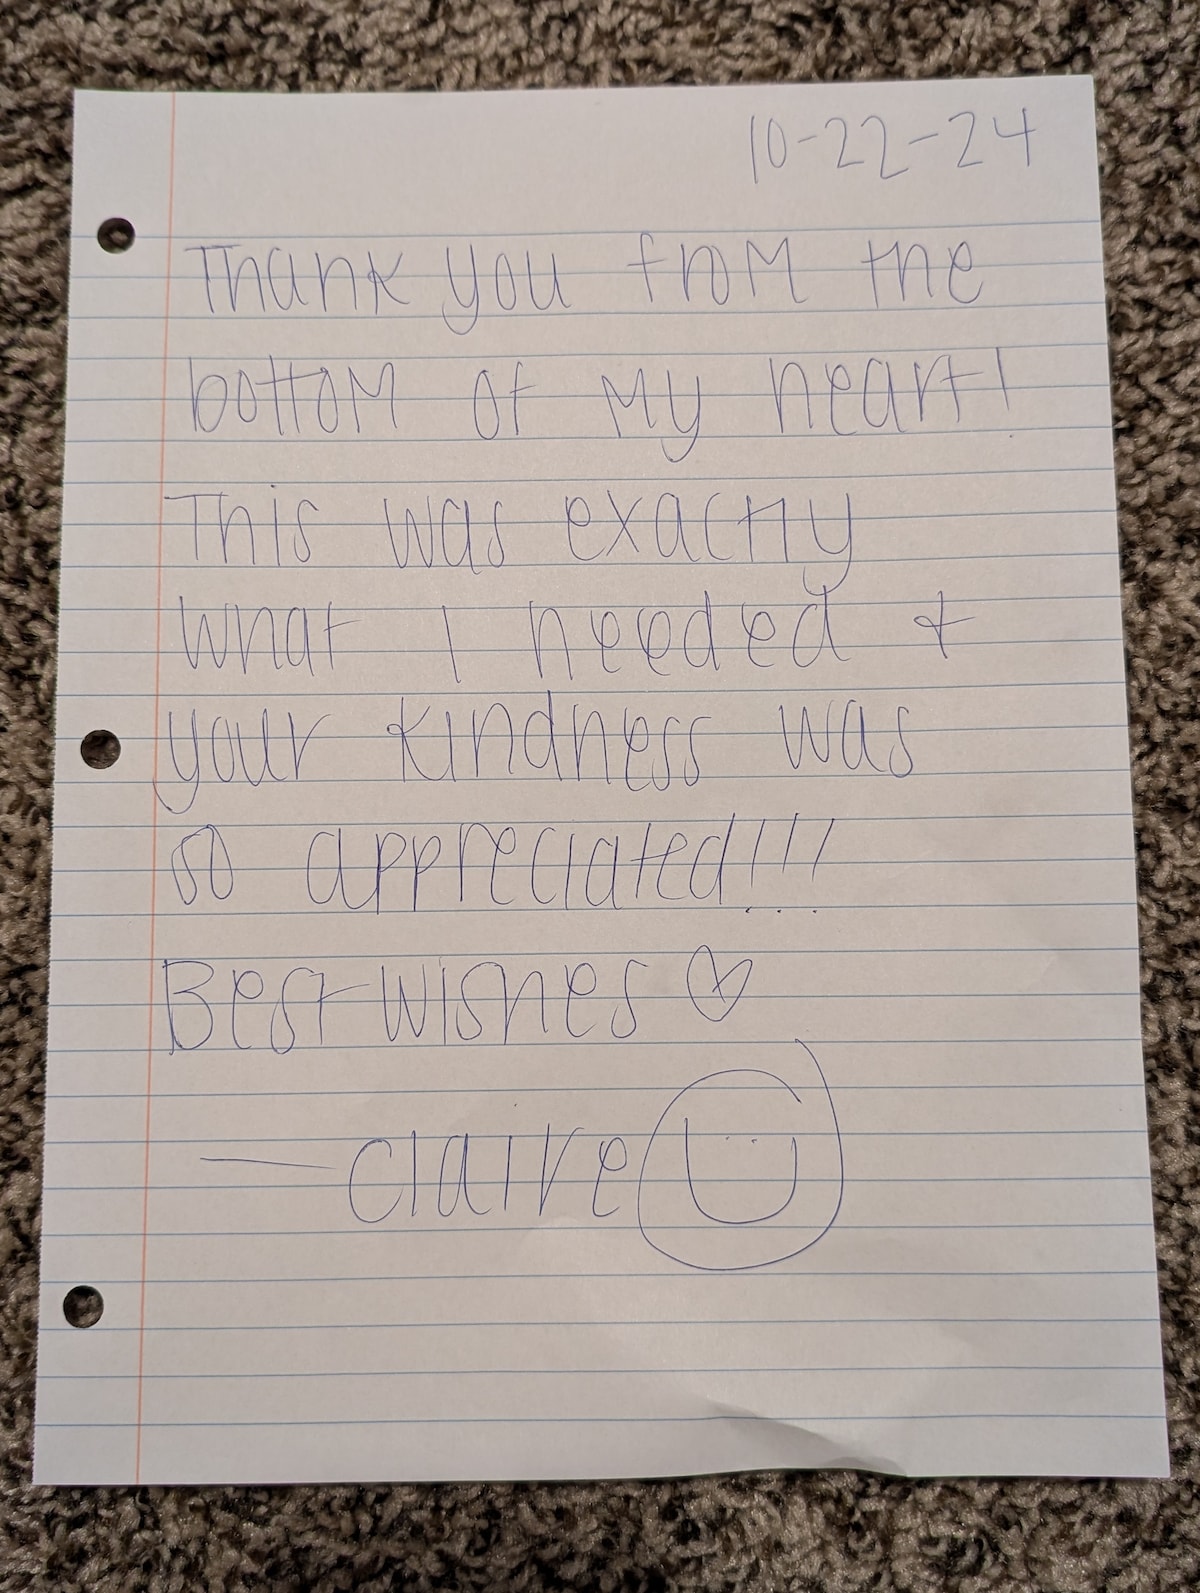 10-22-24
Thank you from the
bottom of my heart!
This was exactly
what I needed &
your kindness was
so appreciated!!!
Best wishes ♡
— Claire